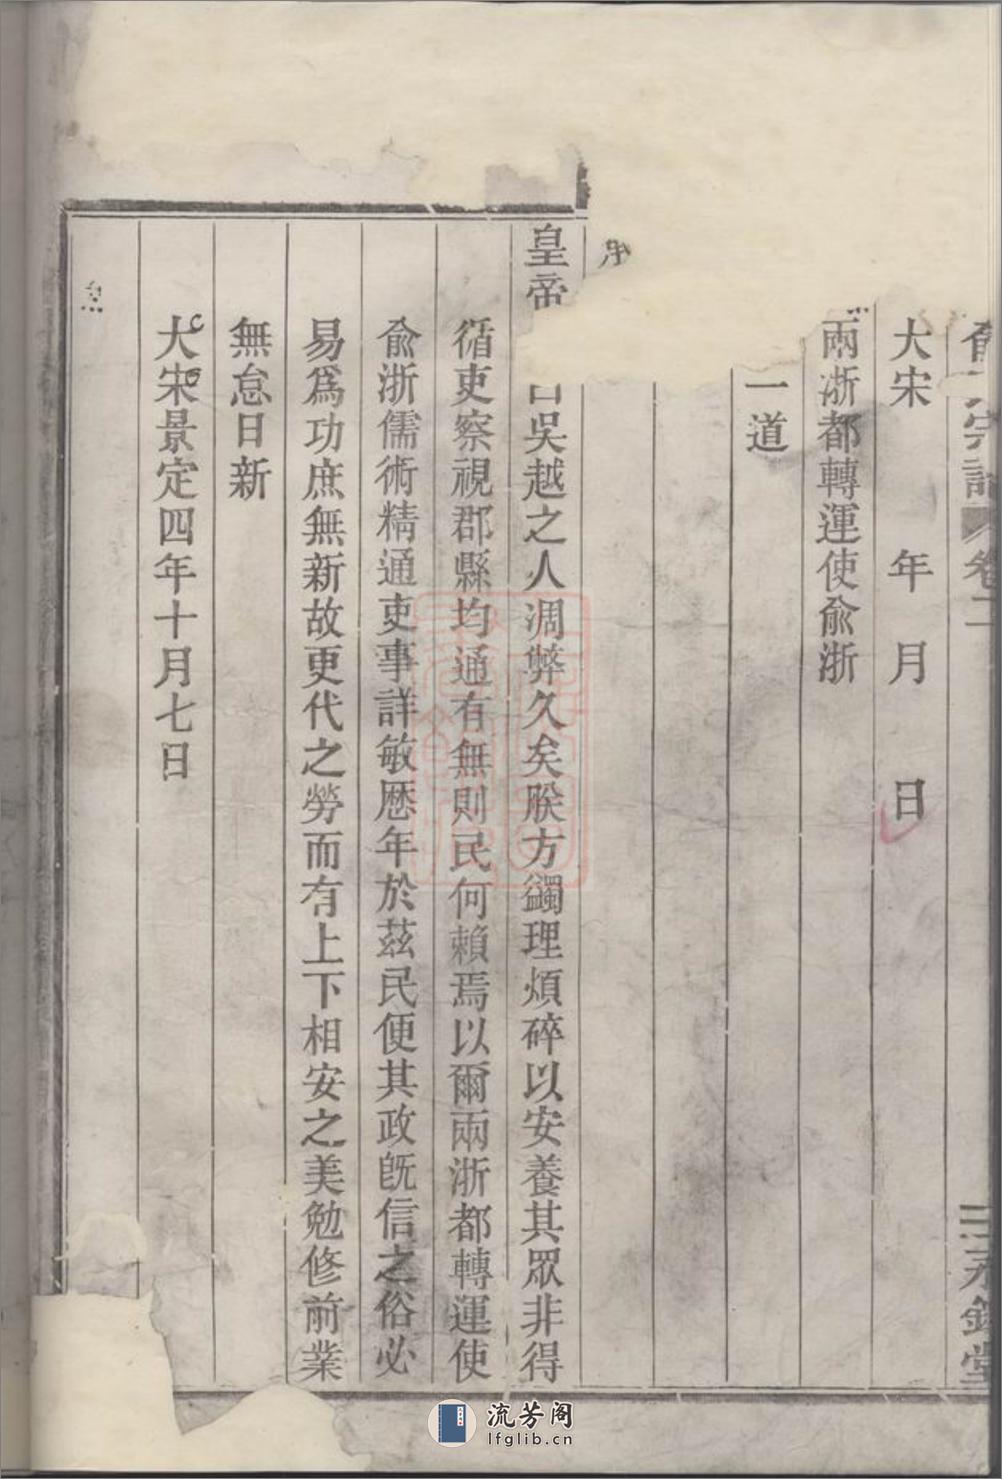 宗譜 卷二 永錫堂
大宋 年 月 日
兩浙都轉運使俞浙
一道
皇帝 曰吳越之人凋弊久矣朕方蠲理煩碎以安養其眾非得
循吏察視郡縣均通有無則民何賴焉以爾兩浙都轉運使
俞浙儒術精通吏事詳敏歷年於茲民便其政旣信之俗必
易爲功庶無新故更代之勞而有上下相安之美勉修前業
無怠日新
大宋景定四年十月七日
流芳阁
lfglib.cn